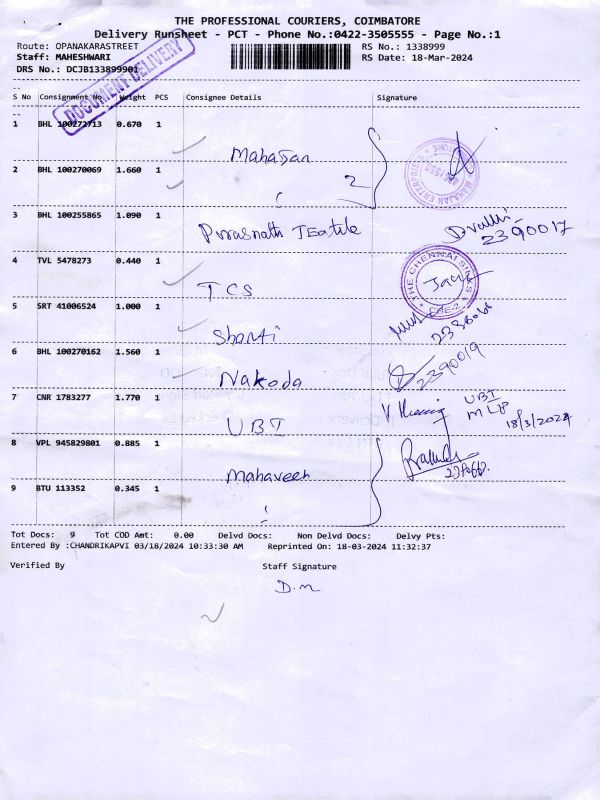 THE PROFESSIONAL COURIERS, COIMBATORE
Delivery Runsheet - PCT - Phone No.:0422-3505555 - Page No.:1
Route: OPANAKARASTREET RS No.: 1338999
Staff: MAHESHWARI RS Date: 18-Mar-2024
DRS No.: DCJB133899901
DOCUMENT DELIVERY
S No Consignment No Weight PCS Consignee Details Signature
1 BHL 100272713 0.670 1
Mahajan
2 BHL 100270069 1.660 1
2
3 BHL 100255865 1.090 1
2390017
4 TVL 5478273 0.440 1
TCS
THE CHENNAI SILKS
CBE-2
5 SRT 41006524 1.000 1
Shanti
6 BHL 100270162 1.560 1
Nakoda 2390019
7 CNR 1783277 1.770 1
UBI
UBI
18/3/2024
8 VPL 945829801 0.885 1
Mahaveer
9 BTU 113352 0.345 1
Tot Docs: 9 Tot COD Amt: 0.00 Delvd Docs: Non Delvd Docs: Delvy Pts:
Entered By :CHANDRIKAPVI 03/18/2024 10:33:30 AM Reprinted On: 18-03-2024 11:32:37
Verified By Staff Signature
D.M